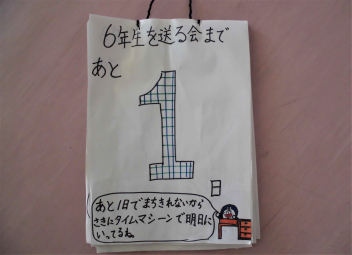 6年生を送る会まで
あと
1
日
あと1日でまちきれないから
さきにタイムマシーンで明日に
いってるね。